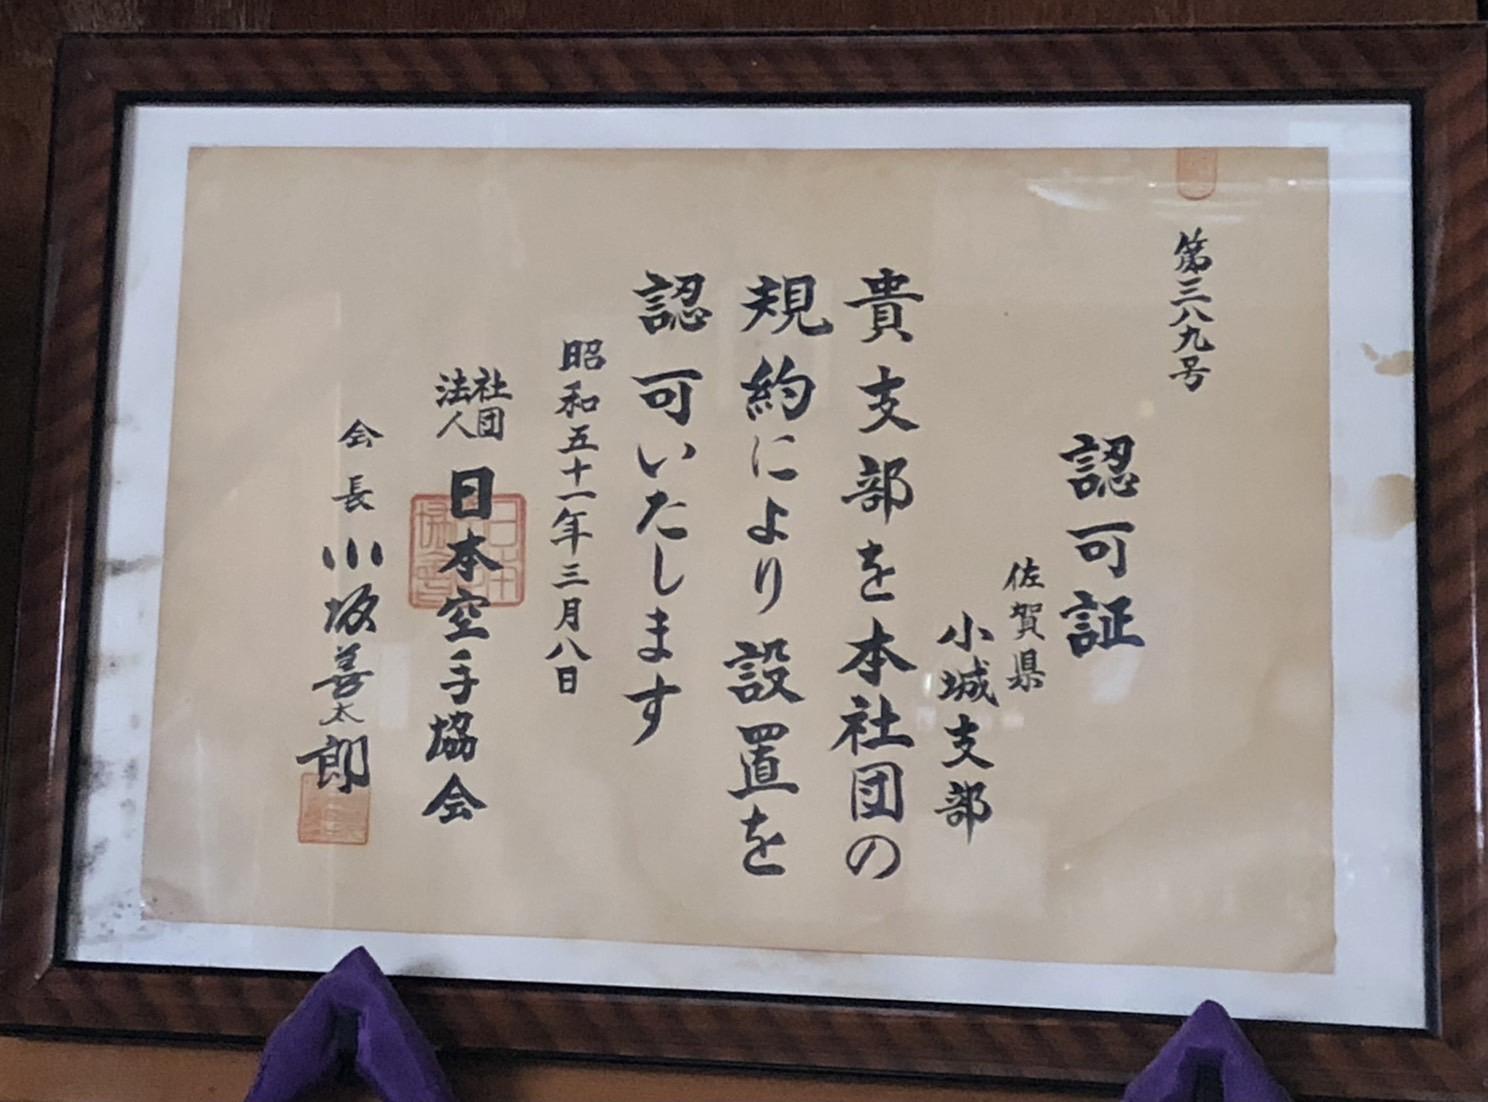 第三八九号
認可証
佐賀県
小城支部
貴支部を本社団の
規約により設置を
認可いたします
昭和五十一年三月八日
社団
法人
日本空手協会
会長 小坂善太郎